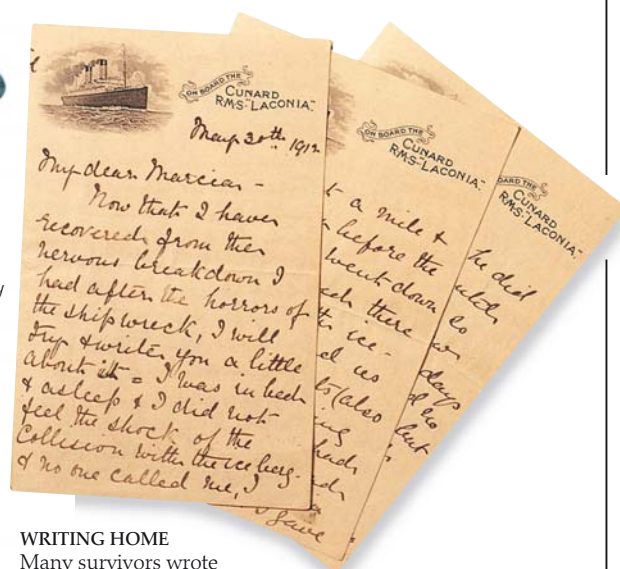 ON BOARD THE
CUNARD
R.M.S. "LACONIA".
May 30th 1912
My dear Marcia -
Now that I have
recovered from the
nervous breakdown I
had after the horrors of
the shipwreck, I will
try & write you a little
about it = I was in bed
& asleep & I did not
feel the shock of the
Collision with the iceberg -
& no one called me, I
ON BOARD THE
CUNARD
R.M.S. "LACONIA".
a mile &
before the
went down
there
ice-
us
(also
gave
CUNARD
R.M.S. "LACONIA".
he did
so
days
so
but
WRITING HOME
Many survivors wrote